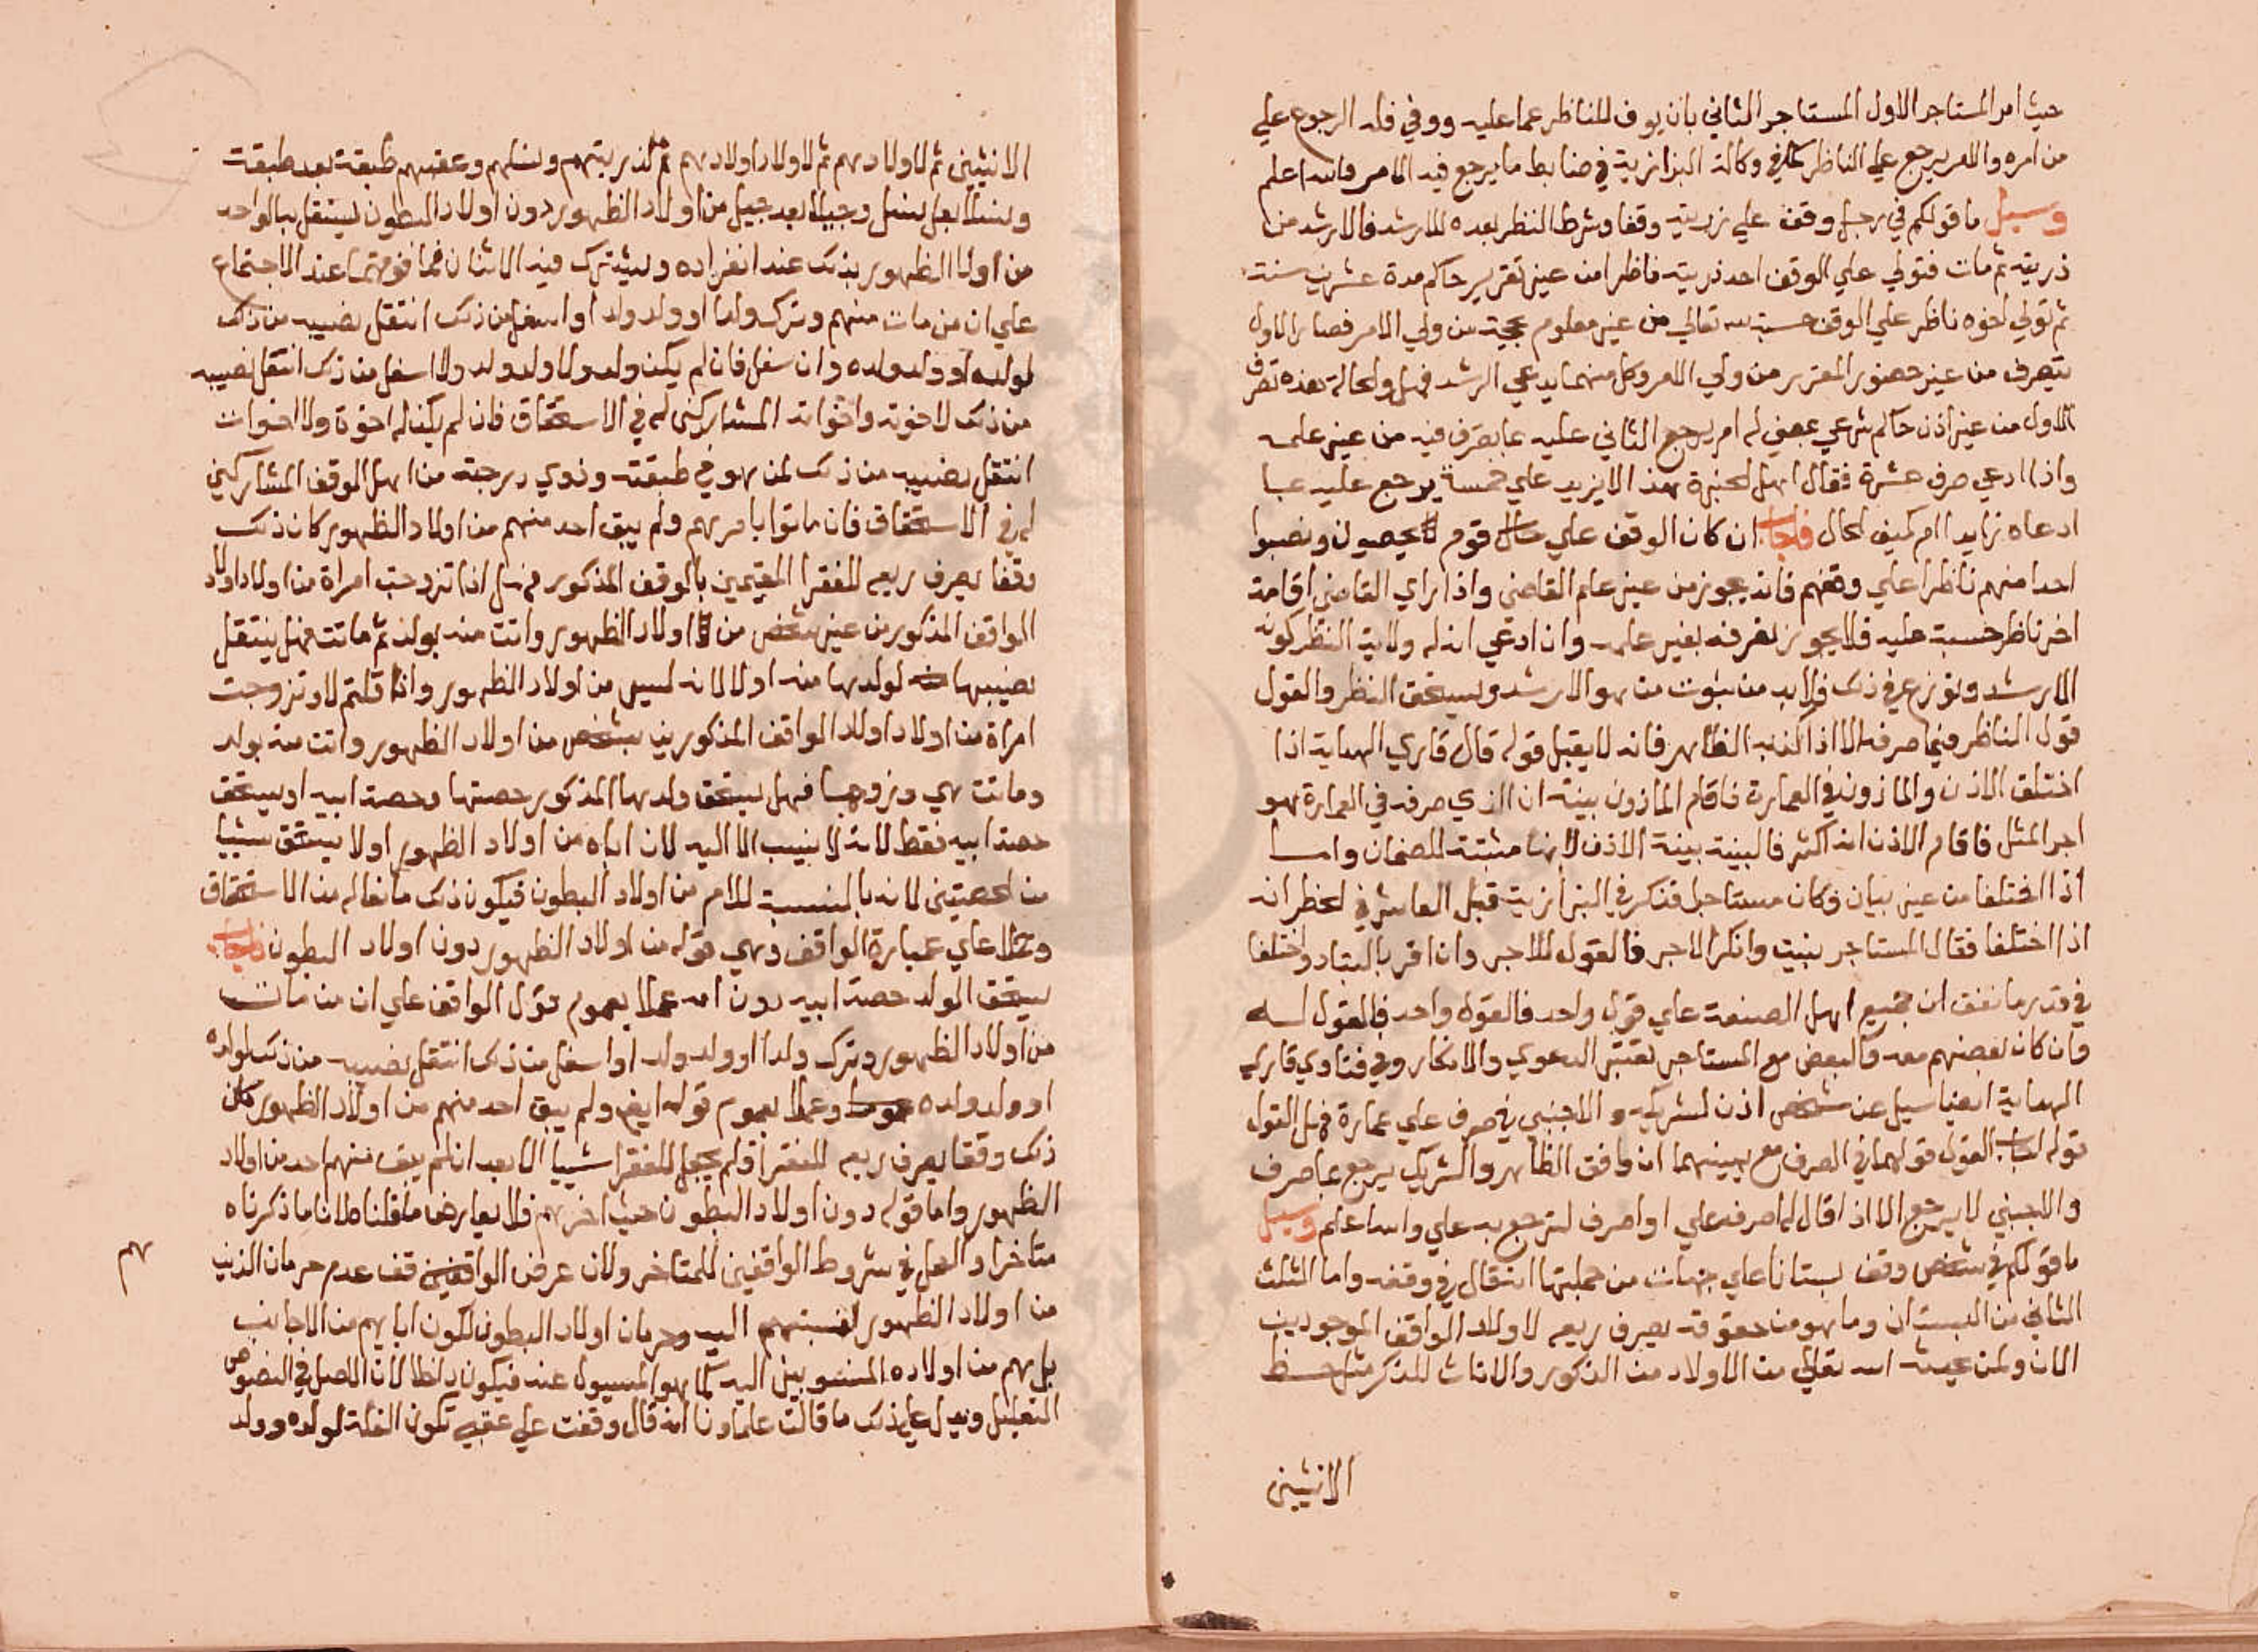 حيث امر المستاجر الاول المستاجر الثاني بان يوف للناظر عما عليه ووفي فله الرجوع علي
من امره والامر يرجع علي الناظر كما في وكالة البزازية في ضابط ما يرجع فيه الامر والله اعلم
وسيل ما قولكم في رجل وقف علي ذريته وقفا وشرط النظر بعده للارشد فالارشد من
ذريته ثم مات فتولي علي الوقف احد ذريته ناظرا من غير تقرير حاكم مدة عشرين سنة
ثم تولي اخوه ناظر علي الوقف حسبة لله تعالي من غير معلوم بحجة من ولي الامر فصار الاول
يتصرف من غير حضور المقرر من ولي الامر وكل منهما يدعي الرشد فهل والحالة هذه تصرف
الاول من غير اذن حاكم شرعي يمضي له ام يرجع الثاني عليه بما يصرف فيه من غير علمه
واذا ادعي صرف عشرة فقال اهل الخبرة هذا لا يزيد علي خمسة يرجع عليه بما
ادعاه زايدا ام كيف الحال فاجاب ان كان الوقف علي قوم يحصون ونصبوا
احدا منهم ناظرا علي وقفهم فانه يجوز من غير علم القاضي واذا راي القاضي اقامة
اخر ناظر حسبة عليه فلا يجوز تصرفه بغير علمه وان ادعي ان له ولاية النظر كونه
الارشد ونوزع في ذلك فلا بد من ثبوت من هو الارشد ويستحق النظر والقول
قول الناظر فيما صرفه الا اذا كذبه الظاهر فانه لا يقبل قوله قال قاري الهداية اذا
اختلف الاذن والماذون في العمارة فاقام الماذون بينة ان الذي صرفه في العمارة هو
اجر المثل فاقام الاذن انه اكثر فالبينة بينة الاذن لانها مثبتة للضمان واما
اذا اختلفا من غير بيان وكان مستاجرا فذكر في البزازية قبل العاشر في الحظر انه
اذا اختلفا فقال المستاجر بنيت وانكر الاجر فالقول للاجر وان اقر بالبناء واختلفا
في قدر ما نفق ان جميع اهل الصنعة علي قول واحد فالقول واحد فالقول له
وان كان بعضهم معه والبعض مع المستاجر تعتبر الدعوي والانكار وفي فتاوي قاري
الهداية ايضا سيل عن شخص اذن لشريكه والاجنبي في صرف علي عمارة فهل القول
قوله اجاب القول قولهما في الصرف مع يمينهما ان وافق الظاهر والشريك يرجع بما صرف
والاجنبي لا يرجع الا اذا قال له اصرف علي او اصرف لترجع به علي والله اعلم وسيل
ما قولكم في شخص وقف بستانا علي جهات من جملتها انه قال في وقفه واما الثلث
الثاني من البستان وما هو من حقوقه يصرف ريعه لاولاد الواقف الموجودين
الان ولمن الله تعالي من الاولاد من الذكور والاناث للذكر مثل حظ
الانثيين
الانثيين ثم لاولادهم ثم لاولاد اولادهم ثم لذريتهم ونسلهم وعقبهم طبقة بعد طبقة
ونسلا بعد نسل وجيلا بعد جيل من اولاد الظهور دون اولاد البطون يستقل به الواحد
من اولاد الظهور بذلك عند انفراده ويشترك فيه الاثنان فما فوقهما عند الاجتماع
علي ان من مات منهم وترك ولدا او ولد ولد او اسفل من ذلك انتقل نصيبه من ذلك
لولده او ولد ولده وان سفل فان لم يكن ولد ولا ولد ولد ولا اسفل من ذلك انتقل نصيبه
من ذلك لاخوته واخواته المشاركين له في الاستحقاق فان لم يكن له اخوة ولا اخوات
انتقل نصيبه من ذلك لمن هو في طبقته وذوي درجته من اهل الوقف المشاركين
له في الاستحقاق فان ماتوا باسرهم ولم يبق احد منهم من اولاد الظهور كان ذلك
وقفا يصرف ريعه للفقرا المقيمين بالوقف المذكور فهل اذا تزوجت امراة من اولاد اولاد
الواقف المذكور من غير شخص من اولاد الظهور واتت منه بولد ثم ماتت فهل ينتقل
نصيبها لولدها منه او لا لانه ليس من اولاد الظهور واذا قلتم لا وتزوجت
امراة من اولاد اولاد الواقف المذكورين بشخص من اولاد الظهور واتت منه بولد
وماتت هي وزوجها فهل يستحق ولدها المذكور حصتها وحصة ابيه او يستحق
حصة ابيه فقط لانه لا ينسب الا اليه لان اباه من اولاد الظهور او لا يستحق شييا
من الحصتين لانه بالنسبة للام من اولاد البطون فيكون ذلك مانعا له من الاستحقاق
وعملا علي عبارة الواقف وهي قوله من اولاد الظهور دون اولاد البطون فاجاب
يستحق الولد حصة ابيه دون امه عملا بعموم قول الواقف علي ان من مات
من اولاد الظهور وترك ولدا او ولد ولد او اسفل من ذلك انتقل نصيبه من ذلك لولده
او ولد ولده وعملا بعموم قوله ايضا ولم يبق احد منهم من اولاد الظهور كان
ذلك وقفا يصرف ريعه للفقرا فلم يجعل للفقرا شييا الا بعد ان لم يبق منهم احد من اولاد
الظهور واما قوله دون اولاد البطون حيث اخرهم فلا يعارض ما قلنا لان ما ذكرناه
متاخرا والعمل في شروط الواقفين للمتاخر ولان عرف الواقفين عدم حرمان الذين
من اولاد الظهور لنسبتهم اليه وحرمان اولاد البطون لكون ابايهم من الاجانب
بل هم من اولاده المنسوبين اليه كما هو المسيول عنه فيكون داخلا لان الاصل في النصوص
التعليل ويدل علي ذلك ما قالت علماونا انه قال وقفت علي عقبي تكون الغلة لولده وولد